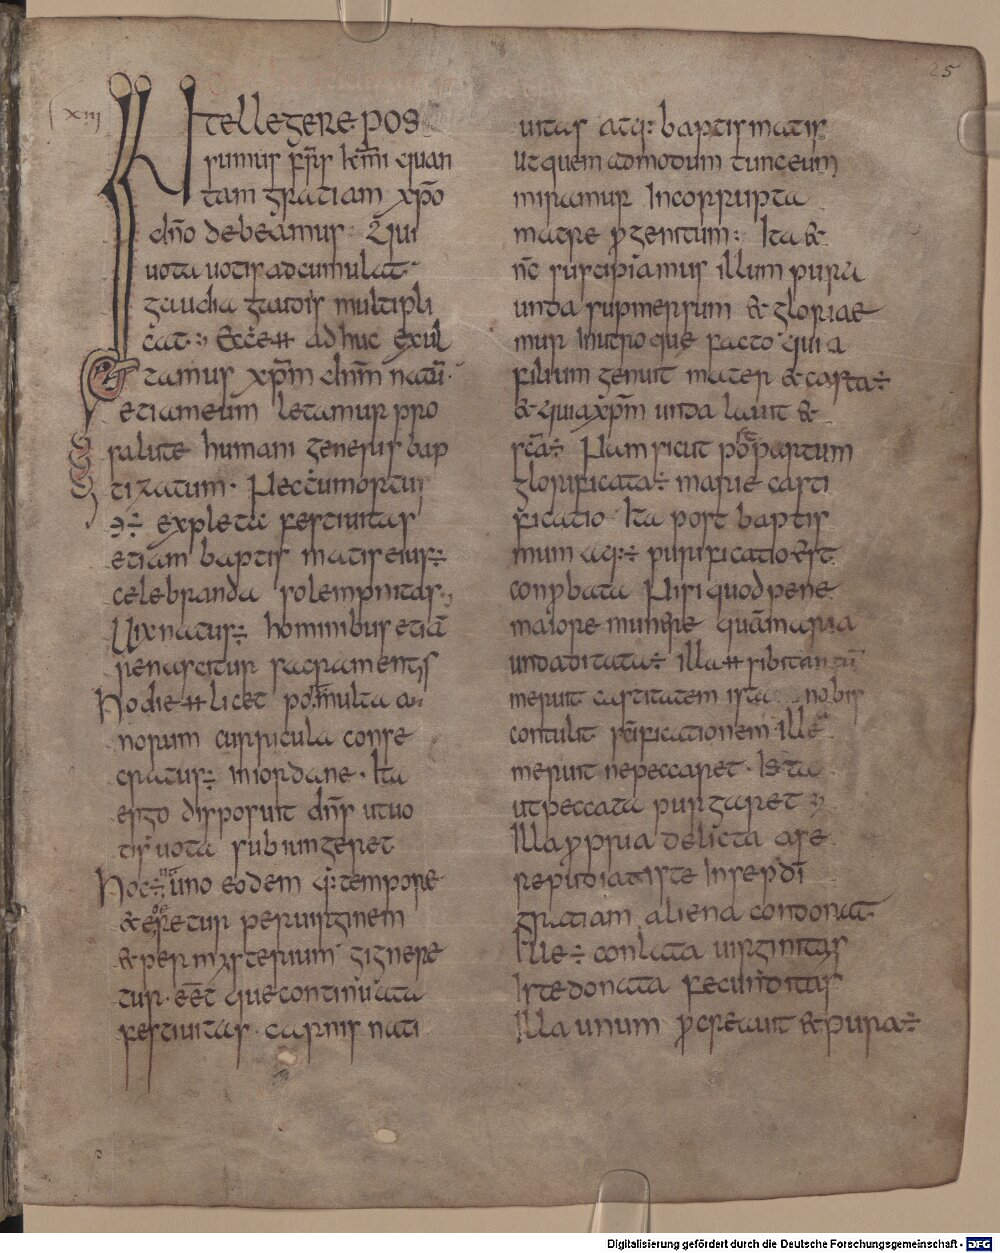 25
xiii
INtellegere pos
sumus fr̄s km̄i quan
tam gratiam xp̄o
dn̄o debeamus · Qui
uota uotis adcumulat
gaudia gaudiis multipli
cat · Ecce ǁ adhuc exul
tamus xp̄m dn̄m natū ·
et iam eum letamur pro
salute humani generis bap
tizatum · Nec cum ortus
ɔ÷ expleta festiuitas
etiam baptismatis eius ÷
celebranda solempnitas
Uix natus ÷ hominibus etiā
renascitur sacramentis
Hodie ǁ licet po· multa an
norum curricula conse
cratus ÷ in iordane · Ita
ergo disposuit dn̄s ut uo
tis uota subiungeret
Hoc ÷ ut uno eodem q: tempore
& ederetur per uirginem
& per mysterium gignere
tur · eēt que continuata
festiuitas · carnis nati
uitas atq: baptismatis
Ut quem admodum tunc eum
miramur Incorrupta
matre p̱genitum : Ita &
nc̄ suscipiamus illum pura
unda supmersum & gloriae
mur In utroque facto quia
filium genuit mater & casta ÷
& quia xp̄m unda lauit &
sc̄a ÷ Nam sicut post partum
glorificata ÷ marie casti
ficatio Ita post baptis
mum aq: ÷ purificatio est
conp̱bata Nisi quod pene
maiore munere quam maria
unda ditata ÷ illa ǁ sibi tantū
meruit castitatem ista nobis
contulit sc̄ificationem ille
meruit ne peccaret · Ista
ut peccata purgaret
Illa p̱pria delicta a se
repudiat iste In se p̱ dī
gratiam aliena condonat ·
Ille ÷ conlata uirginitas
Iste donata fecunditas
Illa unum p̱creauit & pura ÷
Digitalisierung gefördert durch die Deutsche Forschungsgemeinschaft - DFG